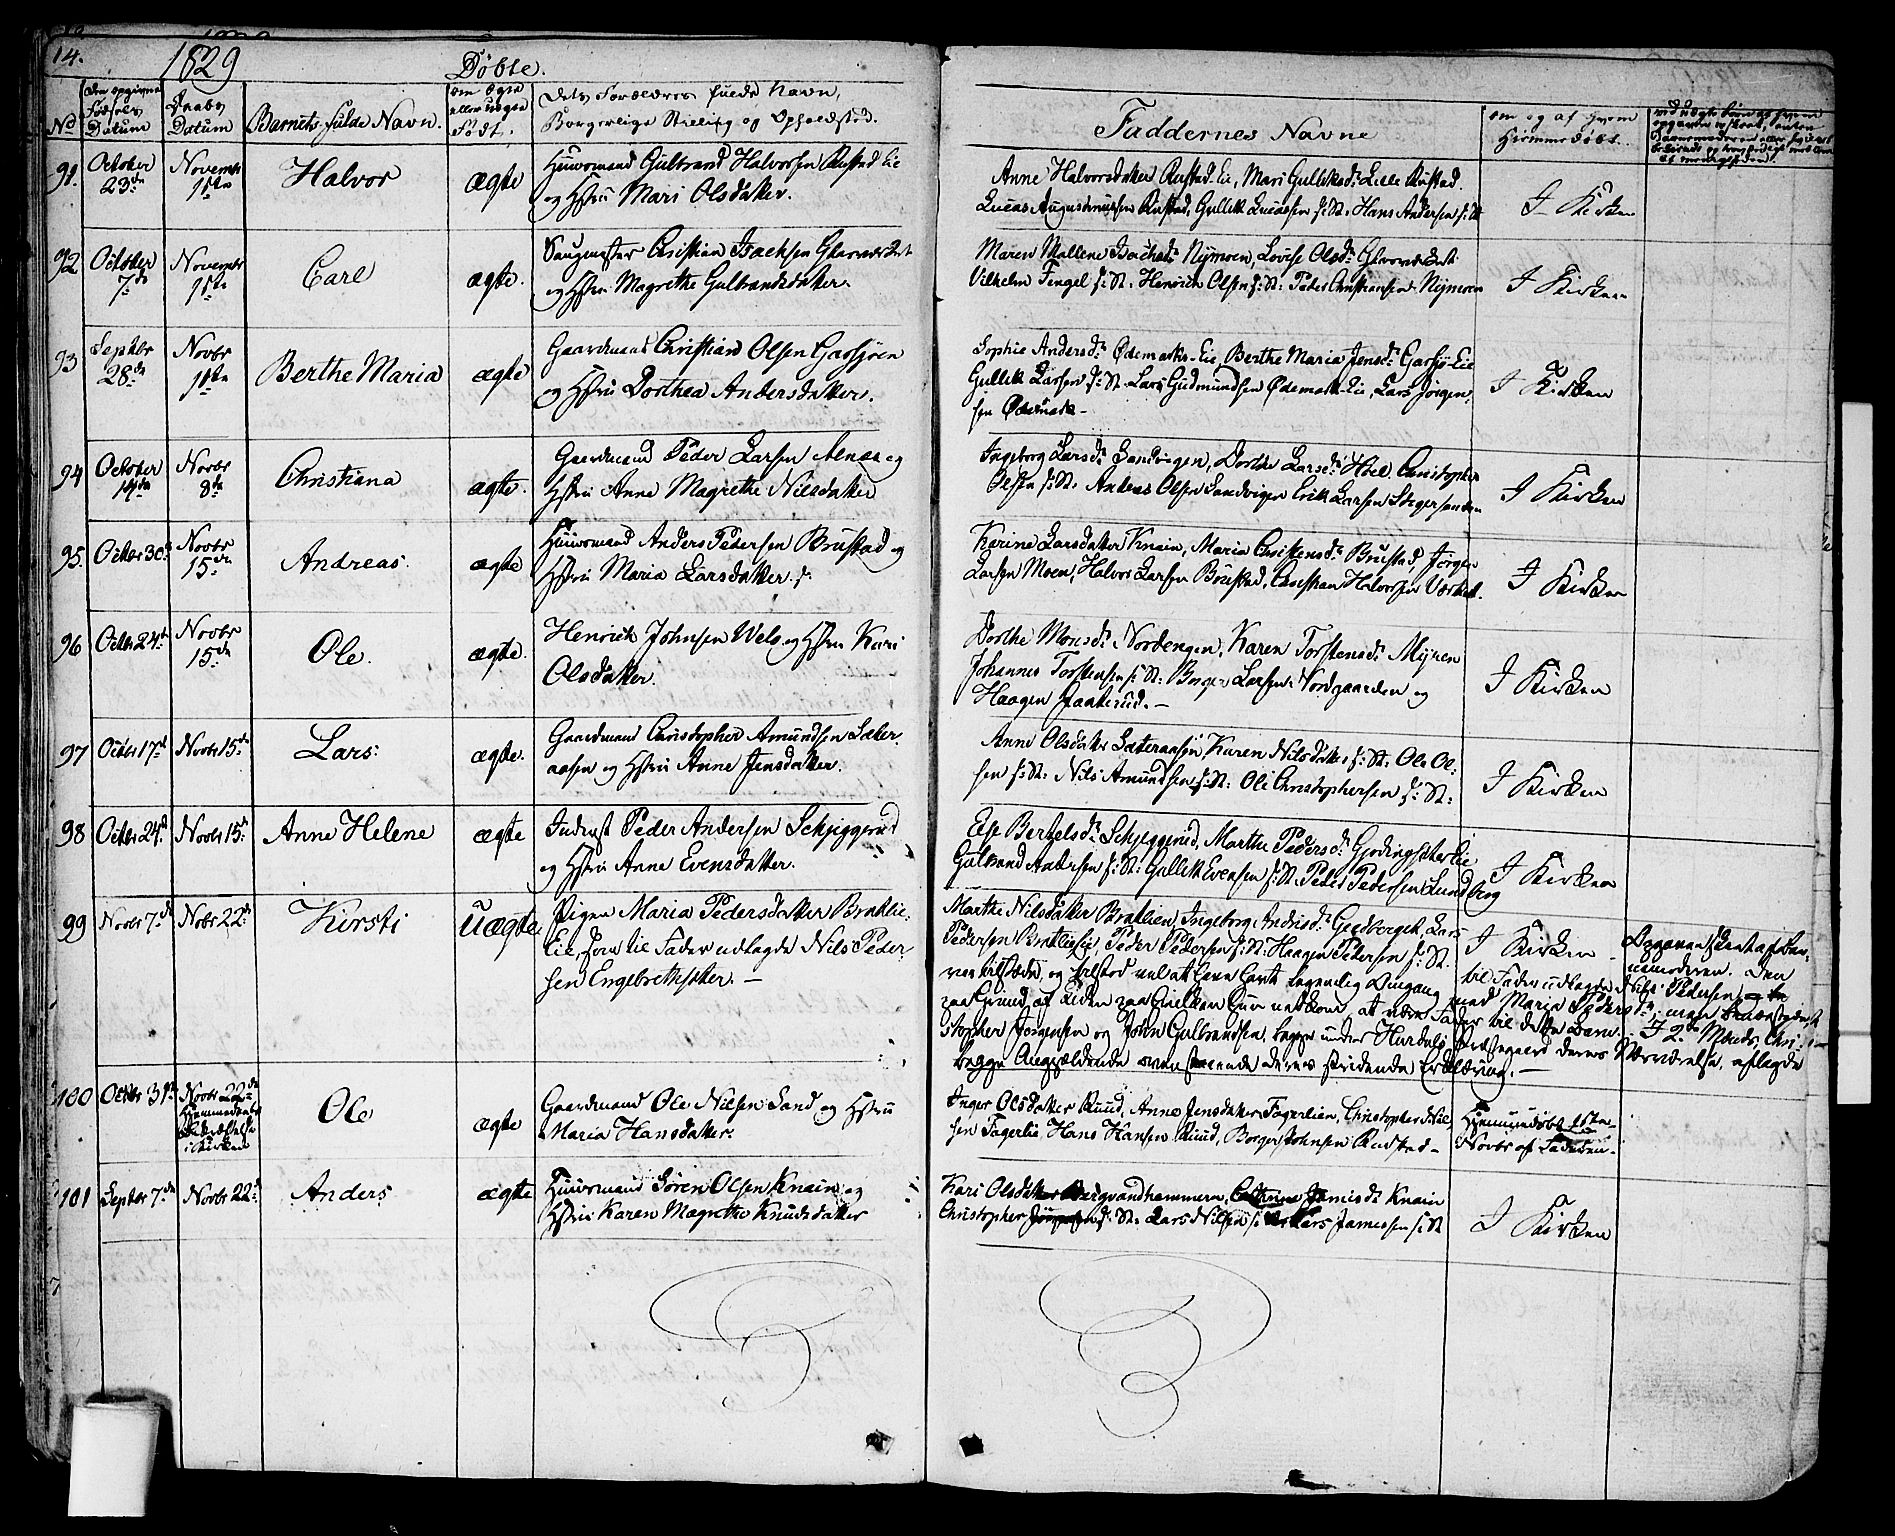 14.
1829
Døbte.
No
Den opgivne Fødsels Datum
Daabs Datum
Barnets fulde Navn.
om Ægte eller uægte Født.
Dets Forældres fulde Navn, Borgerlige Stilling og Opholdsted.
Faddernes Navne
om og af hvem Hjemmedøbt.
91. October 23de Novembr 1ste Halvor ægte
Huusmand Gulbrand Halvorsen Rustad Eie
og Hstru Mari Olsdatter.
Anne Halvorsdatter Rustad Eie, Mari Gulliksdr Lille Rustad.
Lucas Augustinussen Rustad, Gullik Lucassen s: St: Hans Andersen s: St
I Kirken
92 October 7de Novembr 1ste Carl ægte.
Saugmester Christian Isachsen Glasværket
og Hstru Magrethe Gulbrandsdatter.
Maren Mallene Isachsdr Nymoen, Lovise Olsdr Glasværket
Vilhelm Fengel s: St: Henrich Olsen s: St: Peder Christiansen Nymoen
I Kirken
93 Septbr 28de Novbr 1ste Berthe Maria ægte
Gaardmand Christian Olsen Garsjøen
og Hstru Dorthea Andersdatter.
Sophie Andersdr Ødemarks-Eie, Berthe Maria Jensdr Garsjø Eie
Gullik Larsen s: St. Lars Gudmundsen Ødemark Eie, Lars Jørgen-
sen Ødemark
I Kirken
94 October 14de Novbr 8de Christiana ægte.
Gaardmand Peder Larsen Alnæs og
Hstru Anne Magrethe Nilsdatter
Ingeborg Larsdr Sandvigen, Dorthe Larsdr Hoel. Christopher
Olsen s: St: Anders Olsen Sandvigen Erik Larsen
I Kirken
95. Octbr 30te Novbr 15de Andreas. ægte
Huusmand Anders Pedersen Brustad og
Hstru Maria Larsdatter
Karine Larsdatter Knain, Maria Christensdr Brustad, Jørgen
Larsen Moen, Halvor Larsen Brustad, Christian Halvorsen Værket.
I Kirken
96 Octbr 24de Novbr 15de Ole. ægte.
Henrich Johnsen Wels og Hstru Kari
Olsdatter.
Dorthe Monsdr Nordengen, Karen Torstensdr Myren
Johannes Torstensen s: St: Borger Larsen Nordgaarden og
Haagen
I Kirken
97 Octbr 17de Novbr 15de Lars: ægte.
Gaardmand Christopher Amundsen Sæter-
aasen og Hstru Anne Jensdatter.
Anne Olsdatter Sæteraasen Karen Nilsdatter s: St. Ole Ol-
sen s: St: Nils Amundsen s: St: Ole Christophersen s: St:
I Kirken
98 Octbr 24de Novbr 15de Anne Helene ægte
Inderst Peder Andersen Schjeggerud
og Hstru Anne Evensdatter.
Else Bertelsdr Schjeggerud, Marthe Pedersdr Gjødingsæter Eie
Gulbrand Andersen s: St: Gullik Evensen s: St. Peder Pedersen Lundberg
I Kirken
99 Novbr 7de Nobr 22de Kirsti Uægte
Pigen Maria Pedersdatter Bratlie-
Eie, som til Fader udlagde Nils Peder-
sen Engebrethsæter. —
Marthe Nilsdatter Bratlien, Ingeborg Andrisdr Lars
Pedersen Bratlie Eie Peder Pedersen s: St: Haagen Pedersen s: St.
I Kirken
Opgaven skeet af Bar-
nemoderen. Den
til Fader udlagde Nils Pedersen
var tilstæde og tilstod vel at have havt legemlig Omgang med Maria Pedersdr, men
paa Grund af Tiden paa hvilken hun nedkom, at være Fader til dette Barn. I 2de Mænds, Chri-
stopher Jørgensen og John Gulbrandsen, begge under Hurdals Præstegaard deres Nærværelse, aflagde
begge Angjeldende ovenstaaende deres stridende Erklæring. —
100 Octbr 31te Novbr 22de Hjemmedaab Stadfæstelse i Kirken Ole ægte
Gaardmand Ole Nilsen Sand og Hstru
Maria Hansdatter.
Inger Olsdatter Ruud, Anne Jensdatter Fagerlien, Christopher Nil-
sen Fagerlie, Hans Hansen Ruud, Borger Johnsen Rustad —
Hjemmedøbt 1ste Novbr af Faderen.
101 Septbr 7de Novbr 22de Anders ægte
Huusmand Søren Olsen Knain og
Hstru Karen Magrethe Knudsdatter
Kari Olsdatter Bergsandhammeren, Jamisdr Knain
Christopher s: St: Lars Nilsen Lars Jamessen s: St
I Kirken